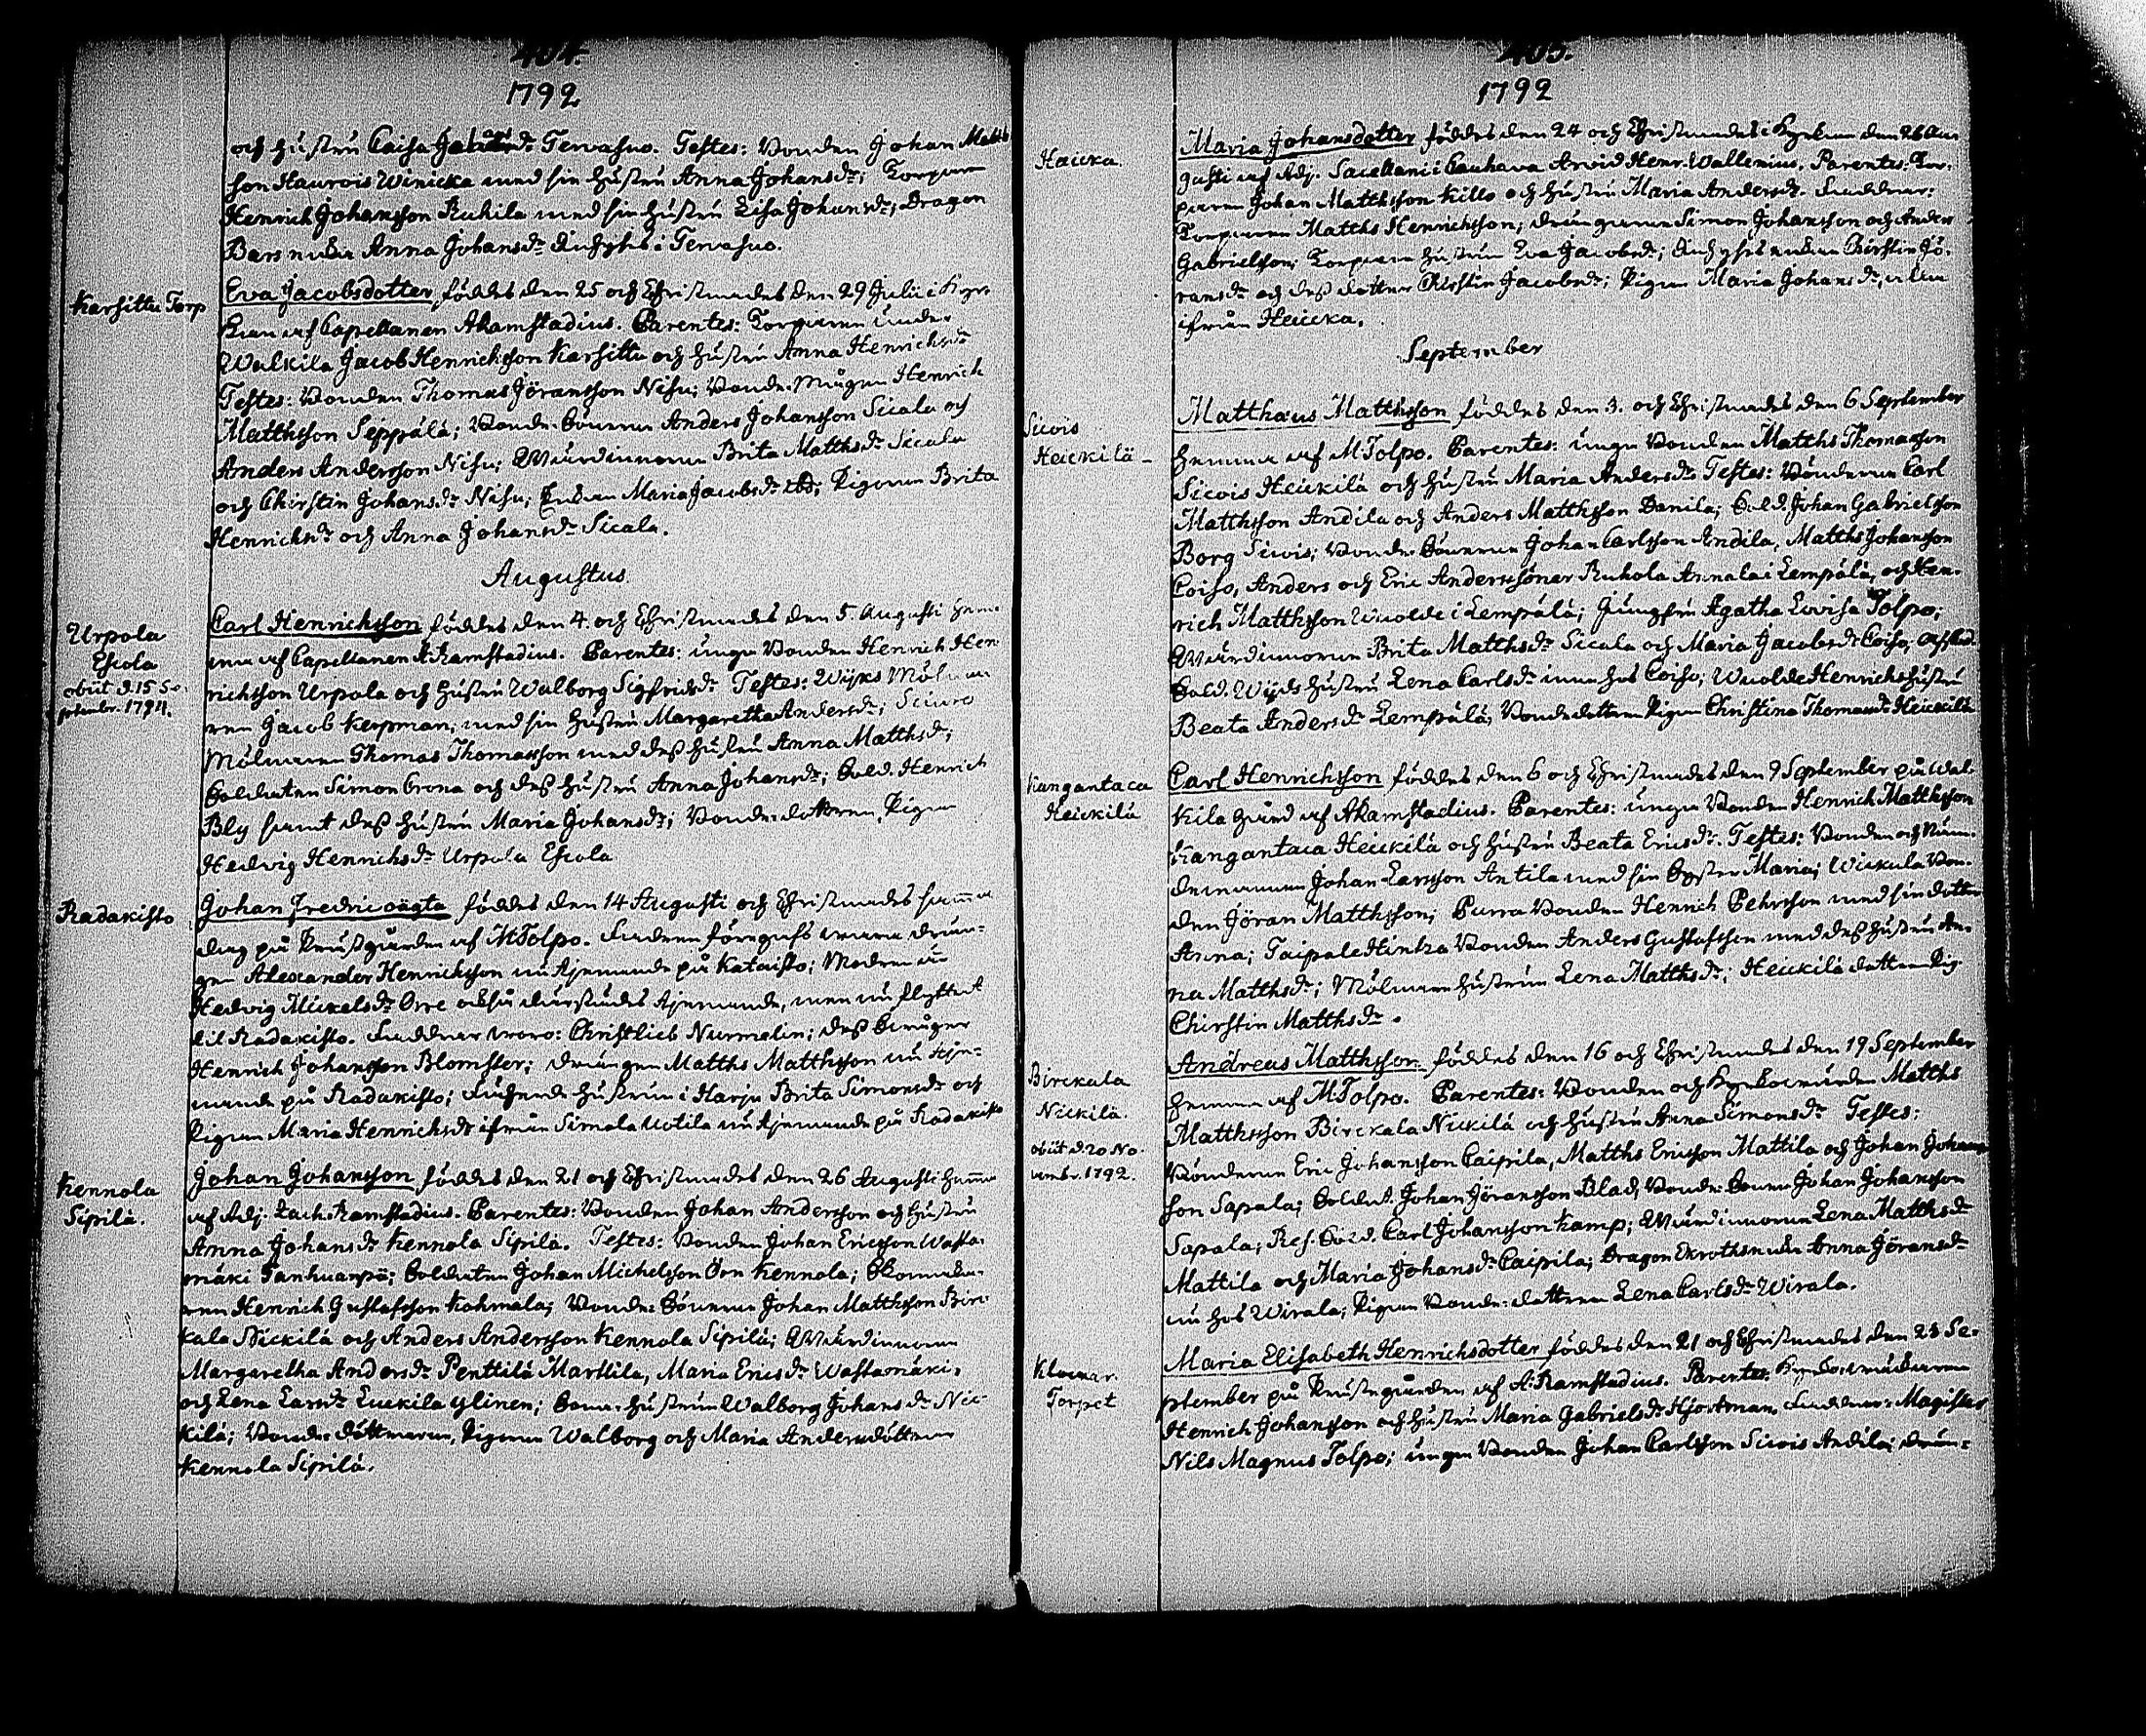 404.
1792
och hustru Caisa Tervasuo. Testes: Bonden Johan Matts
son Haurois Winicka med sin hustru Anna Johansdr; Torparen
Henrich Johansson Ruhila med sin hustru Lisa Johansdr; Dragon
Bars Anna Johansdr i Tervasuo.
Karsittu Torp
Eva Jacobsdotter, föddes den 25 och Christnades den 29 Julii i Kyr-
kan af Capellanen A Ramstadius. Parentes: Torparen under
Walkila Jacob Henrichsson Karsittu och hustru Anna Henrichsdr
Testes: Bonden Thomas Jöransson Nisu; Bonde-Mågen Henrich
Matthsson Seppälä; Bonde-Sönerne Anders Johansson Sicala och
Anders Andersson Nisu; Wärdinnorne Brita Matthsdr Sicala
och Chirstin Johansdr Nisu; Enkan Maria Jacobsdr ibd; Pigorne Brita
Henrichsdr och Anna Johansdr Sicala.
Augustus
Urpola
Escola
obiit d. 15 Se-
ptembr. 1794.
Carl Henrichsson föddes den 4. och Christnades den 5. Augusti hem-
ma af Capellanen A: Ramstadius. Parentes: unga Bonden Henrich Hen-
richsson Urpola och hustru Walborg Sigfridsdr Testes: Wijks Möln-
ren Jacob Kerpman, med sin hustru Margaretha Andersdr; Sciuro
Mölnaren Thomas Thomasson med dess hustru Anna Matthsdr;
Soldaten Simon Crona och dess hustru Anna Johansdr; Sold. Henrich
Bly samt dess hustru Maria Johansdr; Bonde-dottren, Pigan
Hedvig Henrichsdr Urpola Escola
Radakisto
Johan Fredric oägta föddes den 14 Augusti och Christnades samma
dag på Prustgården af M Tolpo. Fadren föregafs vara drän-
gen Alexander Henrichsson nu tjenande på Kataisto; Modren är
Hedvig Mickelsdr Orre också därstädes tjenande, men nu flyttat
til Radakisto. Faddrar woro: Christlieb Nurmelin; dess Swåger
Henrich Johansson Blomster; drängen Matths Matthsson nu tje-
nande på Radakisto; hustrun i Harju Brita Simonsdr och
Pigan Maria Henrichsdr ifrån Simola Uotila nu tjenande på Radakisto
Kennola
Sipilä.
Johan Johansson föddes den 21 och Christnades den 26 Augusti hemma
af Adj. Zach. Ramstadius. Parentes: Bonden Johan Andersson och hustru
Anna Johansdr Kennola Sipilä. Testes: Bonden Johan Ericsson Wasta-
mäki Tanhuanpä; Soldaten Johan Michelsson Örn Kennola; Skomaka-
ren Henrich Gustafsson Kohmala; Bonde-Sönerne Johan Matthsson Birc-
kala Nickilä och Anders Andersson Kennola Sipilä; Wärdinnorne
Margaretha Andersdr Penttilä Marttila, Maria Ericsdr Wastamäki,
och Lena Larsdr Luckila ylinen; Sone-hustrun Walborg Johansdr Nic-
kilä; Bonde-döttrarne, Pigorne Walborg och Maria Andersdöttrar
Kennola Sipilä.
405.
1792
Haucka.
Maria Johansdotter föddes den 24 och Christnades i Kyrkan den 26 Au-
gusti af Adj. Sacellani i Cauhava Arvid Henr. Wallenius. Parentes: Tor-
paren Johan Matthsson Killo och hustru Maria Andersdr. Faddrar:
Torparen Matths Henrichsson; drängarne Simon Johansson och Anders
Gabrielsson; Torpare hustrun Eva Jacobsdr; enkan Chirstin Jö-
ransdr och dess dotter Chirstin Jacobsdr; Pigan Maria Johansdr, alla
ifrån Haucka.
September
Sicois
Heickilä-
Matthæus Matthsson föddes den 3. och Christnades den 6 September
hemma af M Tolpo. Parentes: unga Bonden Matths Thomasson
Sicois Heickilä och hustru Maria Andersdr Testes: Bönderne Carl
Matthsson Andila och Anders Matthsson Danila; Sold. Johan Gabrielsson
Borg Sicois; Bonde-Sönerne Johan Carlsson Andila, Matths Johansson
Coiso, Anders och Eric Anderssöner Ruhola Annala i Lempälä, och Hen-
rich Matthsson Wuolde i Lempälä; Jungfru Agatha Lovisa Tolpo;
Wärdinnorne Brita Matthsdr Sicala och Maria Jacobsdr Coiso; afsked.
Sold. Wijds hustru Lena Carlsdr inne hos Coiso; Wuolde Henrichs hustru
Beata Andersdr Lempälä, Bondedottren Pigan Christina Thomasdr Heickilä
Kangantaca
Heickilä
Carl Henrichsson föddes den 6 och Christnades den 9 September på Wal-
kila gård af A Ramstadius. Parentes: unga Bonden Henrich Matthsson
Kangantaca Heickilä och hustru Beata Ericsdr. Testes: Bonden och Näm-
demannen Johan Larsson Antila med sin Syster Maria; Wickula Bon-
den Jöran Matthsson; Purra Bonden Henrich Pehrsson med sin dotter
Anna; Taipale Hintza Bonden Anders Gustafsson med dess hustru An-
na Matthsdr; Mölnare hustrun Lena Matthsdr; Heickilä dottren Pig-
Chirstin Matthsdr.
Birckala
Nickilä.
obiit d. 20 No-
vembr. 1792.
Andreas Matthsson föddes den 16 och Christnades den 19 September
hemma af M Tolpo. Parentes: Bonden och Kyrkowärden Matths
Matthsson Birckala Nickilä och hustru Anna Simonsdr Testes:
Bönderne Eric Johansson Caipila, Matths Ericsson Mattila och Johan Johans
son Sapala; Soldat. Johan Jöransson Blad, Bonde-Sonen Johan Johansson
Sapala; Res. Sold. Carl Johansson Kamp; Wärdinnorne Lena Matthsdr
Mattila och Maria Johansdr Caipila; Dragon Ekroths enka Anna Jöransdr
nu hos Wirala; Pigan Bonde-dottren Lena Carlsdr Wirala.
Klockar-
Torpet
Maria Elisabeth Henrichsdotter föddes den 21 och Christnades den 23 Se-
ptember på Prustegården af A: Ramstadius. Parentes:
Henrich Johansson och hustru Maria Gabrielsdr Hjortman. Faddrar: Magister
Nils Magnus Tolpo; unga Bonden Johan Carlsson Sicois Andila; drän-